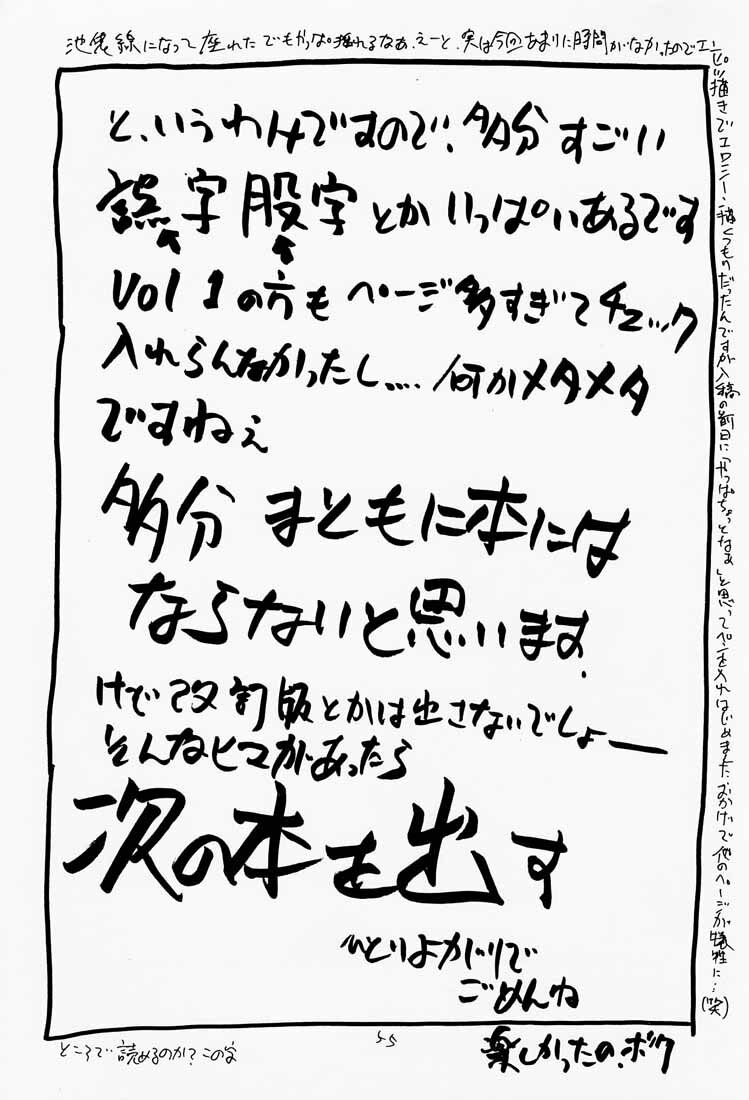 池袋線になって座れた でもやっぱ揺れるなぁ、えーと、実は今回あまりに時間がなかったのでエンピツ描きでエロシーン描くつもりだったんですが入稿の前日に「やっぱちょっとなぁ」と思ってペンを入れはじめました。おかげで他のページが犠牲に…(笑)
と、いうわけですので、多分すごい
誤字股字とかいっぱいあるです
Vol 1の方もページ多すぎてチェック
入れらんなかったし....何かメタメタ
ですねぇ
多分 まともに本には
ならないと思います.
けど改訂版とかは出さないでしょー
そんなヒマがあったら
次の本を出す
ひとりよがりで
ごめんね
楽しかったの、ボク
55
ところで読めるのか?この字